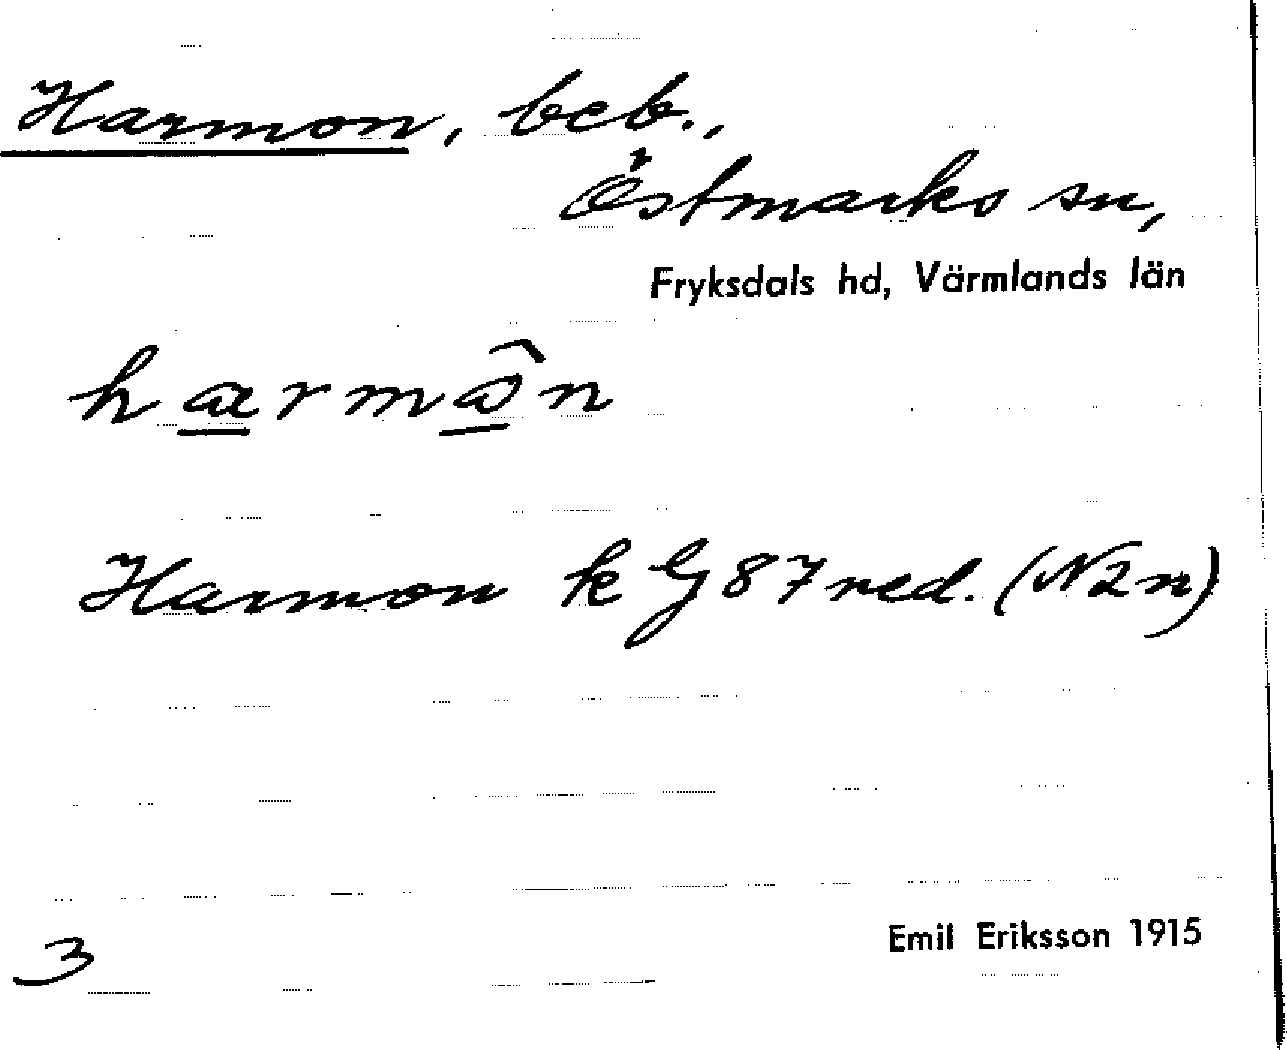 Harmon, beb.,
Östmarks sn,
Fryksdals hd, Värmlands län
Harmon k G 87 ned. (N2n)
3
Emil Eriksson 1915